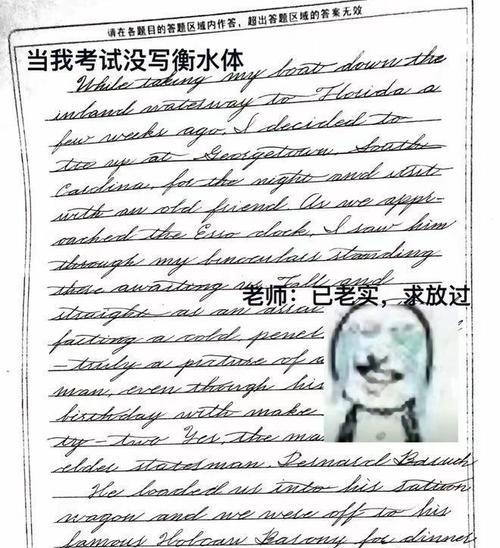 请在各题目的答题区域内作答，超出答题区域的答案无效
当我考试没写衡水体
While taking my boat down the
inland waterway to Florida a
few weeks ago, I decided to
tie up at Georgetown, South
Carolina, for the night and visit
with an old friend. As we appr-
oached the Esso dock, I saw him
through my binoculars standing
there awaiting us. Tall and
straight as an arrow
老师：已老实，求放过
facing a cold penet
-truly a picture of a
man, even though his
birthday with make
ty-two Yes, the ma
elder statesman, Bernard Baruch
He loaded us into his station
wagon and we were off to his
famous Hobcaw Barony for dinner